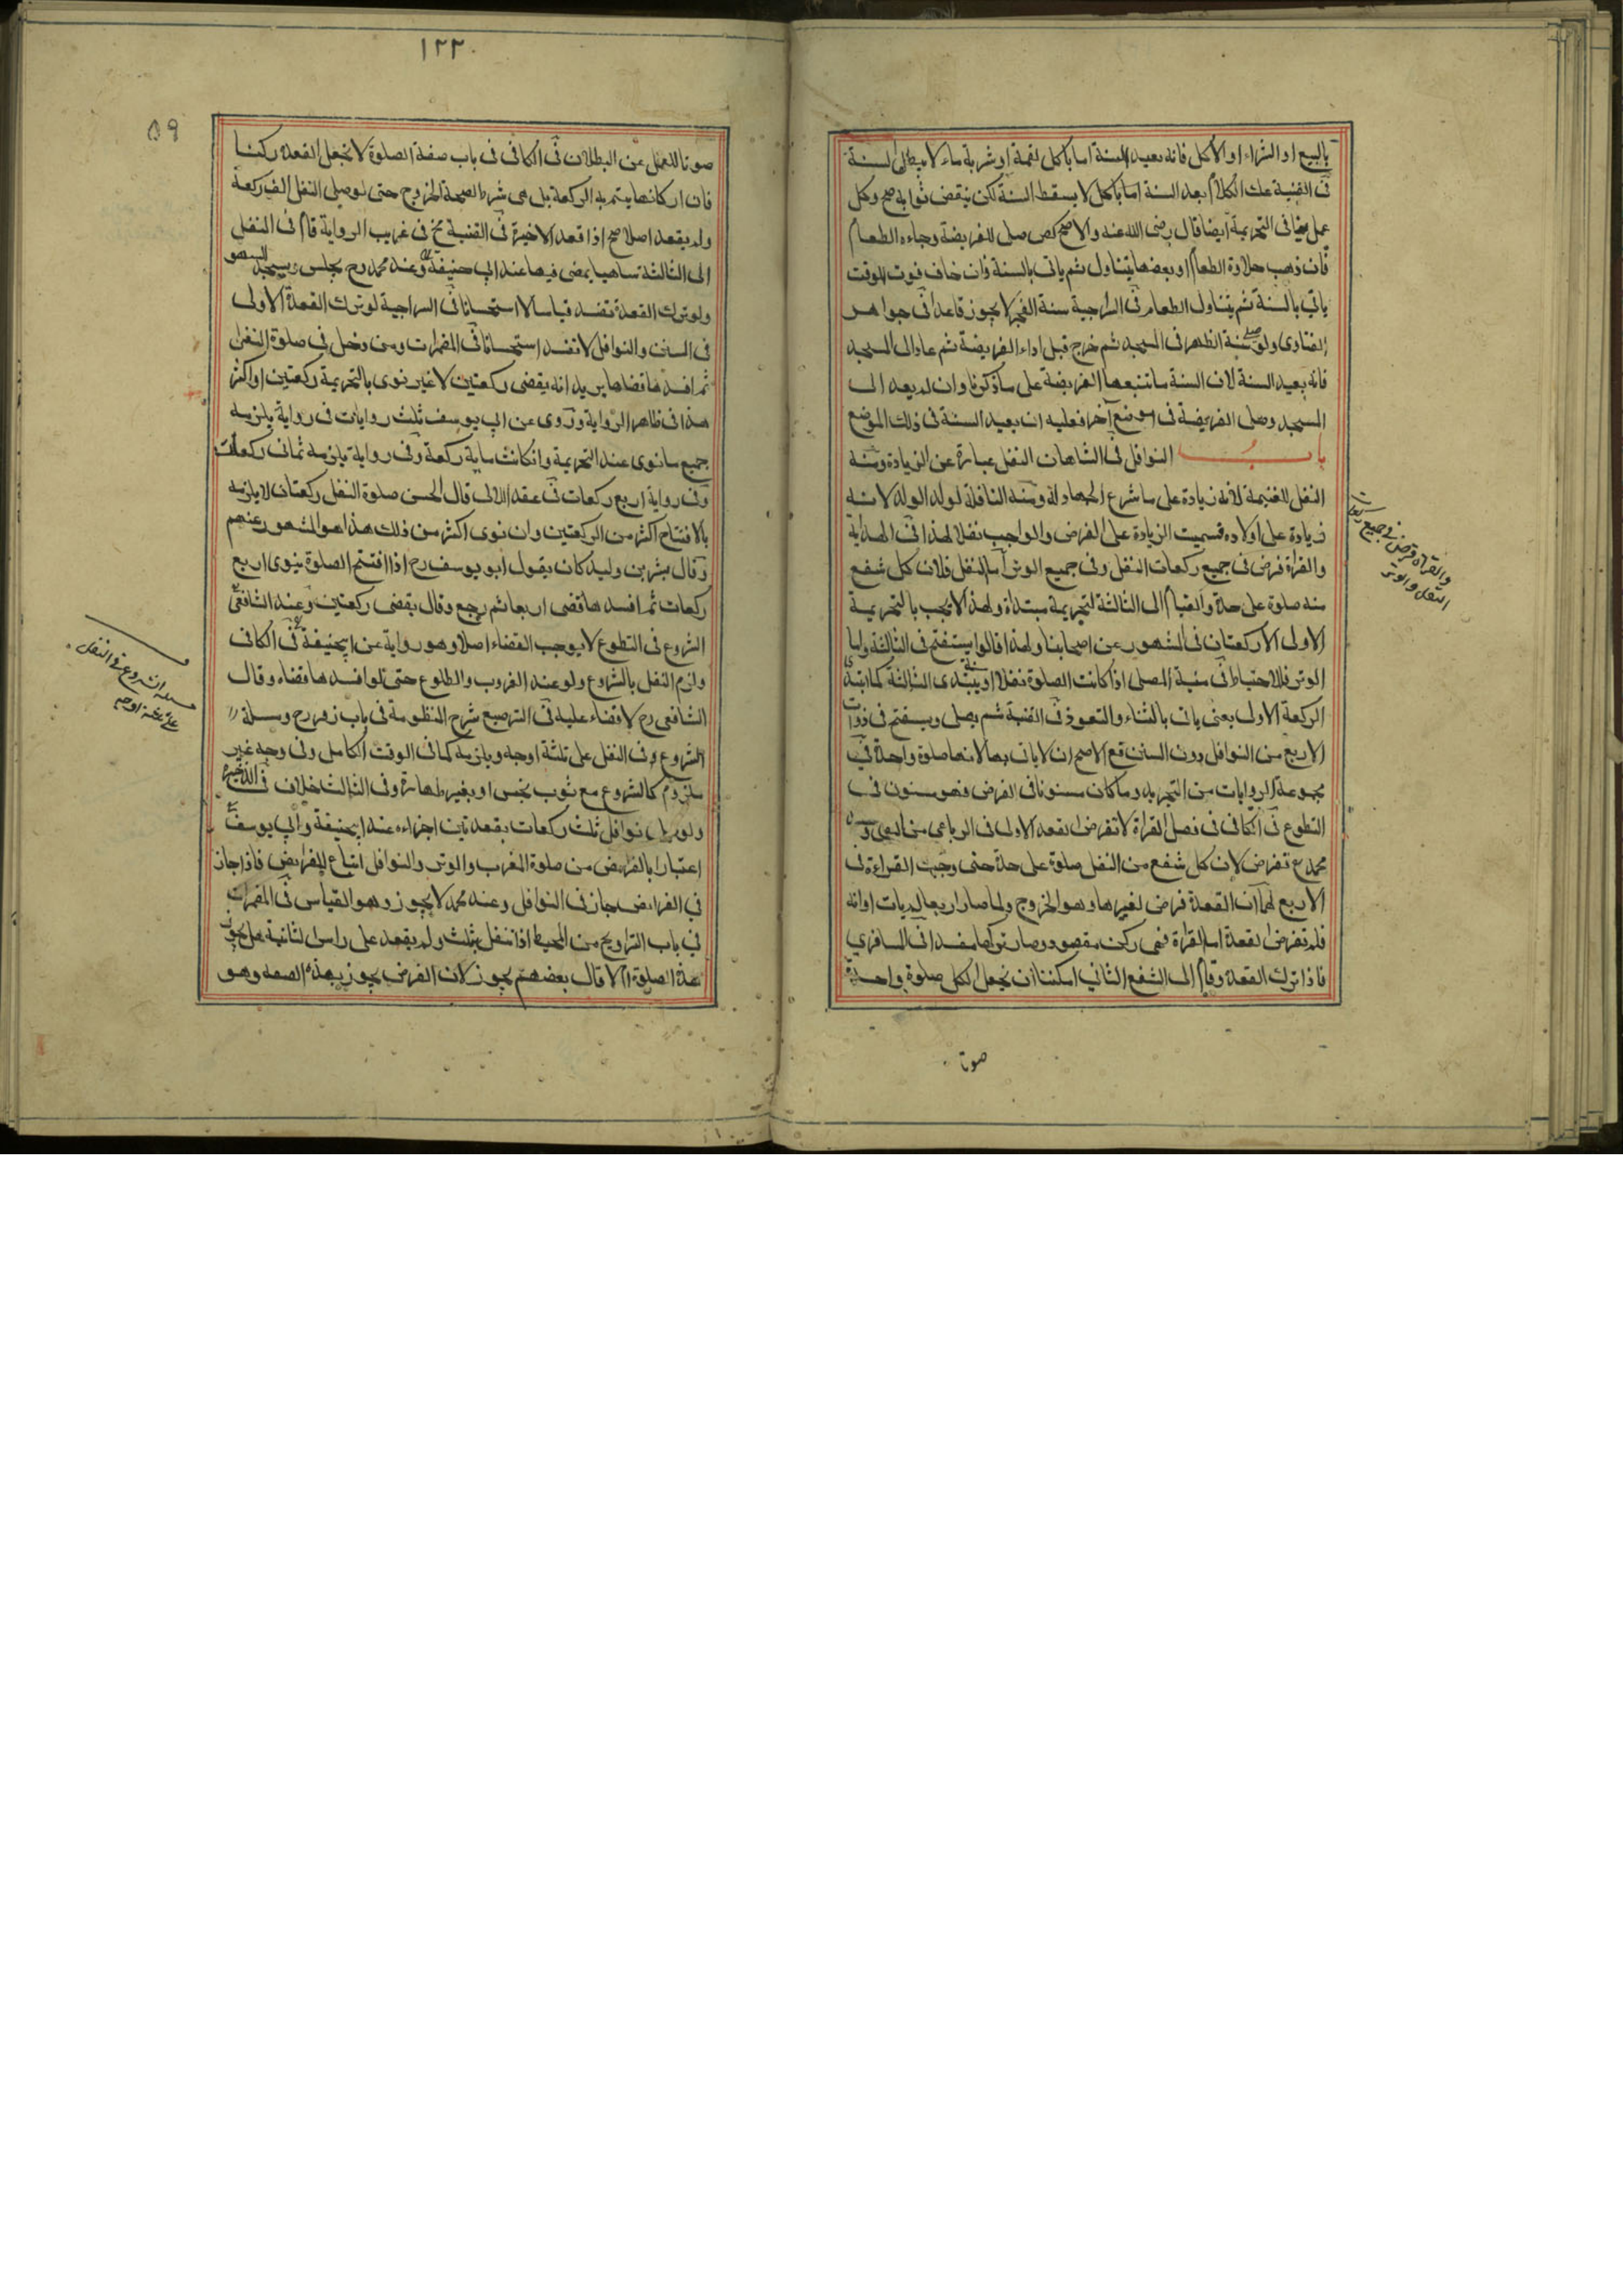 بالبيع او الشراء او الاكل فانه يعيد السنة اما باكل لقمة او شربة ماء لا يبطل السنة
في القنية عك الكلام بعد السنة اما باكل لا يسقط السنة لكن ينقض ثوابه صح وكل
عمل ينافي التحريمة ايضا قال رضي الله عنه والاصح كص صلى الفريضة وجاءه الطعام
فان ذهب حلاوة الطعام او بعضها يتناول ثم ياتي بالسنة وان خاف فوت الوقت
ياتي بالسنة ثم يتناول الطعام في السراجية سنة الفجر لا يجوز قاعدا في جواهر
الفتاوى ولو صلى سنة الظهر في المسجد ثم خرج قبل اداء الفريضة ثم عاد الى المسجد
فانه يعيد السنة لان السنة ما تتبعها الفريضة على ما ذكرنا وان لم يعد الى
المسجد وصلى الفريضة في موضع آخر فعليه ان يعيد السنة في ذلك الموضع
باب النوافل في الشاهان النفل عبارة عن الزيادة ومنه
النفل للغنيمة لانه زيادة على ما شرع الجهاد له ومنه النافلة لولد الولد لانه
زيادة على اولاده فسميت الزيادة على الفرض والواجب نفلا لهذا في الهداية
والقراة فرض في جميع ركعات النفل وفي جميع الوتر اما النفل فلان كل شفع
منه صلوة على حدة والقيام الى الثالثة لتحريمة مبتداة ولهذا لا يجب بالتحريمة
الاولى الا ركعتان في المشهور عن اصحابنا ولهذا قالوا يستفتح في الثالثة واما
الوتر فللاحتياط في منية المصلي اذا كانت الصلوة نفلا او يبتدى الثالثة كما ابتدى
الركعة الاولى يعني ياتي بالثناء والتعوذ في القنية شم يصلي ويستفتح في ذوات
الاربع من النوافل دون السنن قع الاصح ان لا ياتي بها لانها صلوة واحدة في
مجموعة الروايات من التجريد وما كان مسنونا في الفرض فهو مسنون في
التطوع في الكافي في فصل القراة لا تفرض القعدة الاولى في الرباعي من النفل و
محمد رح تفرض لان كل شفع من النفل صلوة على حدة حتى وجبت القراءة في
الاربع لهما ان القعدة فرض لغيرها وهو الخروج ولما صار اربعا
فلم تفرض القعدة اما القراة فهي ركن مقصود وصار تركها مفسدا في
فاذا ترك القعدة وقام الى الشفع الثاني امكننا ان نجعل الكل صلوة واحدة
صونا
والقراة فرض في جميع ركعات
النفل والوتر
١٢٢
٥٩
صونا للعمل عن البطلان في الكافي في باب صفة الصلوة لا نجعل القعدة ركنا
فان اركانها يتم به الركعة بل هي شرط لصحة الخروج حتى لو صلى النفل الف ركعة
ولم يقعد اصلا صح اذا قعد الاخيرة في القنية نخ في غريب الرواية قام في النفل
الى الثالثة ساهيا يمضي فيها عند ابي حنيفة وعند محمد رح يجلس ويسجد للسهو
ولو ترك القعدة تفسد قياسا لا استحسانا في السراجية لو ترك القعدة الاولى
في السنن والنوافل لا تفسد استحسانا في المضمرات ومن دخل في صلوة النفل
ثم افسدها قضاها يريد انه يقضي ركعتين لا غير نوى بالتحريمة ركعتين او اكثر
هذا في ظاهر الرواية وروى عن ابي يوسف ثلث روايات في رواية يلزمه
جميع ما نوى عند التحريمة وان كانت ماية ركعة وفي رواية يلزمه ثماني ركعات
وفي رواية اربع ركعات في عقد اللالي قال الحسن صلوة النفل ركعتان لا يلزمه
بالافتتاح اكثر من الركعتين وان نوى اكثر من ذلك هذا هو المشهور عنهم
وقال بشر بن وليد كان يقول ابو يوسف رح اذا افتتح الصلوة ينوى اربع
ركعات ثم افسدها قضى اربعا ثم رجع وقال يقضى ركعتين وعند الشافعي
الشروع في التطوع لا يوجب القضاء اصلا وهو رواية عن ابي حنيفة في الكافي
ولزم النفل بالشروع ولو عند الغروب والطلوع حتى لو افسدها قضاه وقال
الشافعي رح لا قضاء عليه في الترصيع شرح المنظومة في باب زفر رح ومسلة
الشروع في النفل على ثلثة اوجه ويلزمه كما في الوقت الكامل وفي وجه غير
ملزوم كالشروع مع ثوب نجس او بغير طهارة وفي الثالث خلاف في الذخيرة
ولو صلى نوافل ثلث ركعات بقعدتين اجزاءه عند ابي حنيفة وابي يوسف
اعتبارا بالفرايض من صلوة المغرب والوتر والنوافل اتباع للفرايض فاذا جاز
في الفرايض جاز في النوافل وعند محمد لا يجوز وهو القياس في المضمرات
في باب التراويح من المحيط اذا تنفل بثلث ولم يقعد على راس الثانية هل يجوز
هذه الصلوة ام لا قال بعضهم يجوز لان الفرض يجوز بهذه الصفة وهو
مسله الشروع في النفل
على ثلثه اوجه